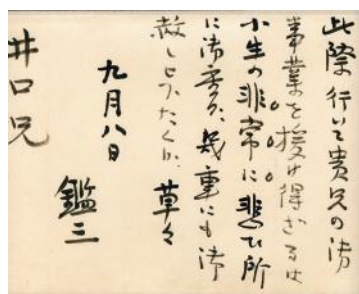 此際行いて貴兄の御
事業を援け得ざるは
小生の非常に悲む所
に御座候、幾重にも御
赦し被下たく候、草々
九月八日
鑑三
井口兄